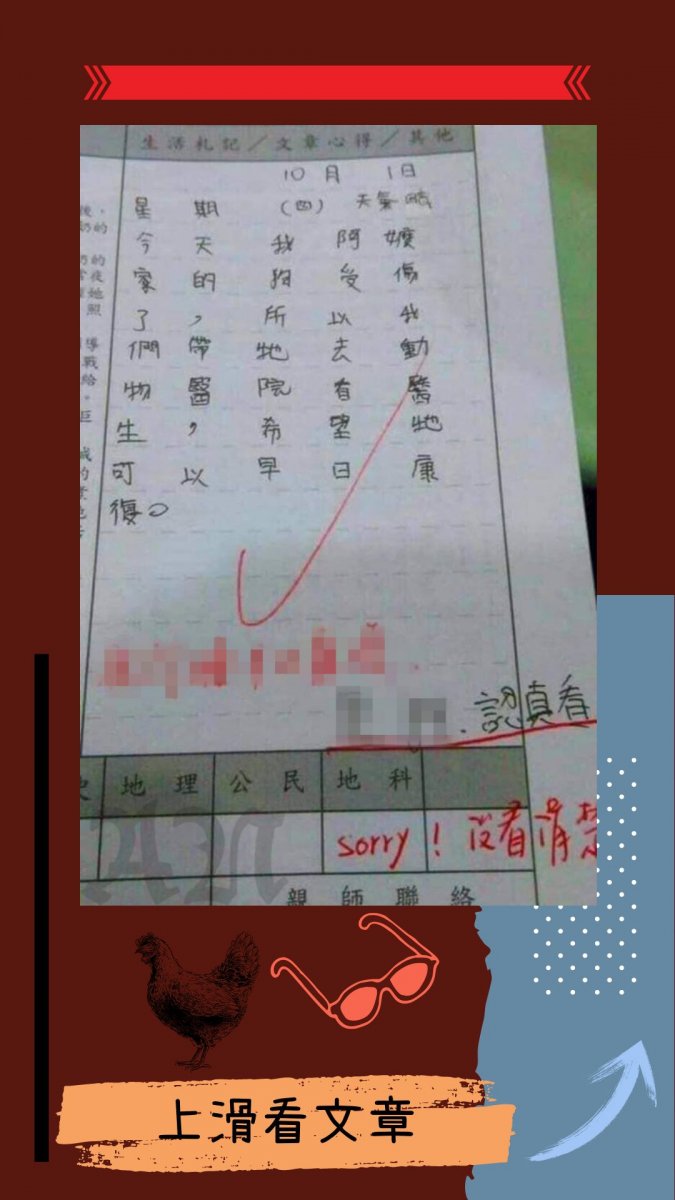 生活札記／文章心得／其他
10月 1日
星期 (四) 天氣晴
今天我阿嬤
家的狗受傷
了，所以我
們帶牠去動
物醫院有醫
生，希望牠
可以早日康
復。
認真看
地理 公民 地科
sorry！沒看清
親師聯絡
上滑看文章